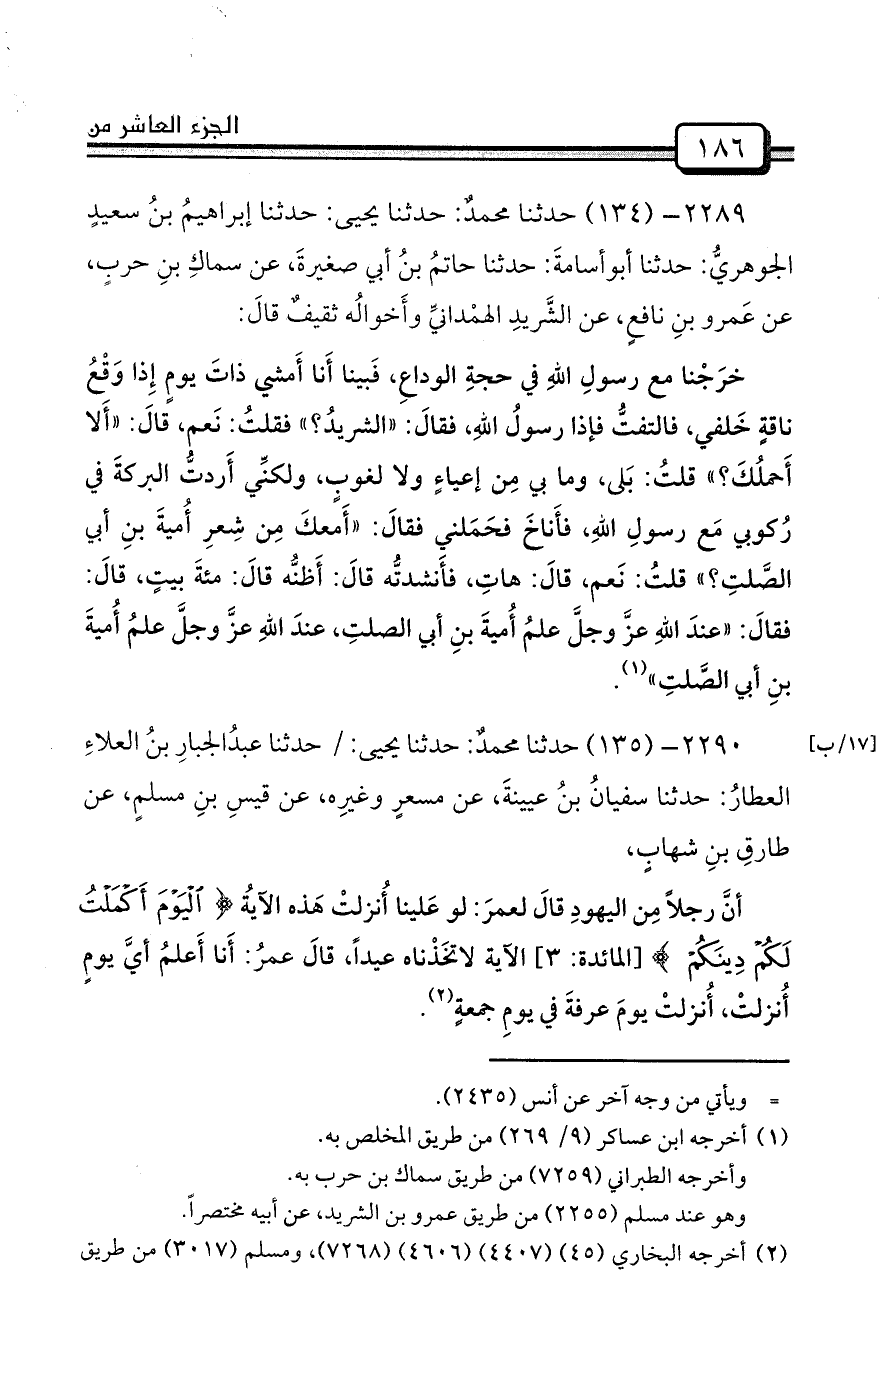 الجزء العاشر من
١٨٦
٢٢٨٩- (١٣٤) حدثنا محمدٌ: حدثنا يحيى: حدثنا إبراهيمُ بنُ سعيدٍ
الجوهريُّ: حدثنا أبوأسامةَ: حدثنا حاتمُ بنُ أبي صغيرةَ، عن سماكِ بنِ حربٍ،
عن عَمرو بنِ نافعٍ، عن الشَّريدِ الهمْدانيِّ وأَخوالُه ثقيفٌ قالَ:
خرَجْنا مع رسولِ اللهِ في حجةِ الوداعِ، فَبينا أَنا أَمشي ذاتَ يومٍ إِذا وَقْعُ
ناقةٍ خَلفي، فالتفتُّ فإذا رسولُ اللهِ، فقالَ: «الشريدُ؟» فقلتُ: نَعم، قالَ: «أَلا
أَحملُكَ؟» قلتُ: بَلى، وما بي مِن إعياءٍ ولا لغوبٍ، ولكنِّي أَردتُّ البركةَ في
رُكوبي مَع رسولِ اللهِ، فأَناخَ فحَمَلني فقالَ: «أَمعكَ مِن شِعرِ أُميةَ بنِ أبي
الصَّلتِ؟» قلتُ: نَعم، قالَ: هاتِ، فأَنشدتُّه قالَ: أَظنُّه قالَ: مئةَ بيتٍ، قالَ:
فقالَ: «عندَ اللهِ عزَّ وجلَّ علمُ أُميةَ بنِ أبي الصلتِ، عندَ اللهِ عزَّ وجلَّ علمُ أُميةَ
بنِ أبي الصَّلتِ»(١).
٢٢٩٠- (١٣٥) حدثنا محمدٌ: حدثنا يحيى: / حدثنا عبدُالجبارِ بنُ العلاءِ
[١٧/ب]
العطارُ: حدثنا سفيانُ بنُ عيينةَ، عن مسعرٍ وغيرِه، عن قيسِ بنِ مسلمٍ، عن
طارقِ بنِ شهابٍ،
أنَّ رجلاً مِن اليهودِ قالَ لعمرَ: لو عَلينا أُنزلتْ هَذه الآيةُ ﴿ ٱلۡيَوۡمَ أَكۡمَلۡتُ
لَكُمۡ دِينَكُمۡ ﴾ [المائدة: ٣] الآية لاتخَذْناه عيداً، قالَ عمرُ: أَنا أَعلمُ أيَّ يومٍ
أُنزلتْ، أُنزلتْ يومَ عرفةَ في يومِ جمعةٍ(٢).
= ويأتي من وجه آخر عن أنس (٢٤٣٥).
(١) أخرجه ابن عساكر (٩/ ٢٦٩) من طريق المخلص به.
وأخرجه الطبراني (٧٢٥٩) من طريق سماك بن حرب به.
وهو عند مسلم (٢٢٥٥) من طريق عمرو بن الشريد، عن أبيه مختصراً.
(٢) أخرجه البخاري (٤٥) (٤٤٠٧) (٤٦٠٦) (٧٢٦٨)، ومسلم (٣٠١٧) من طريق